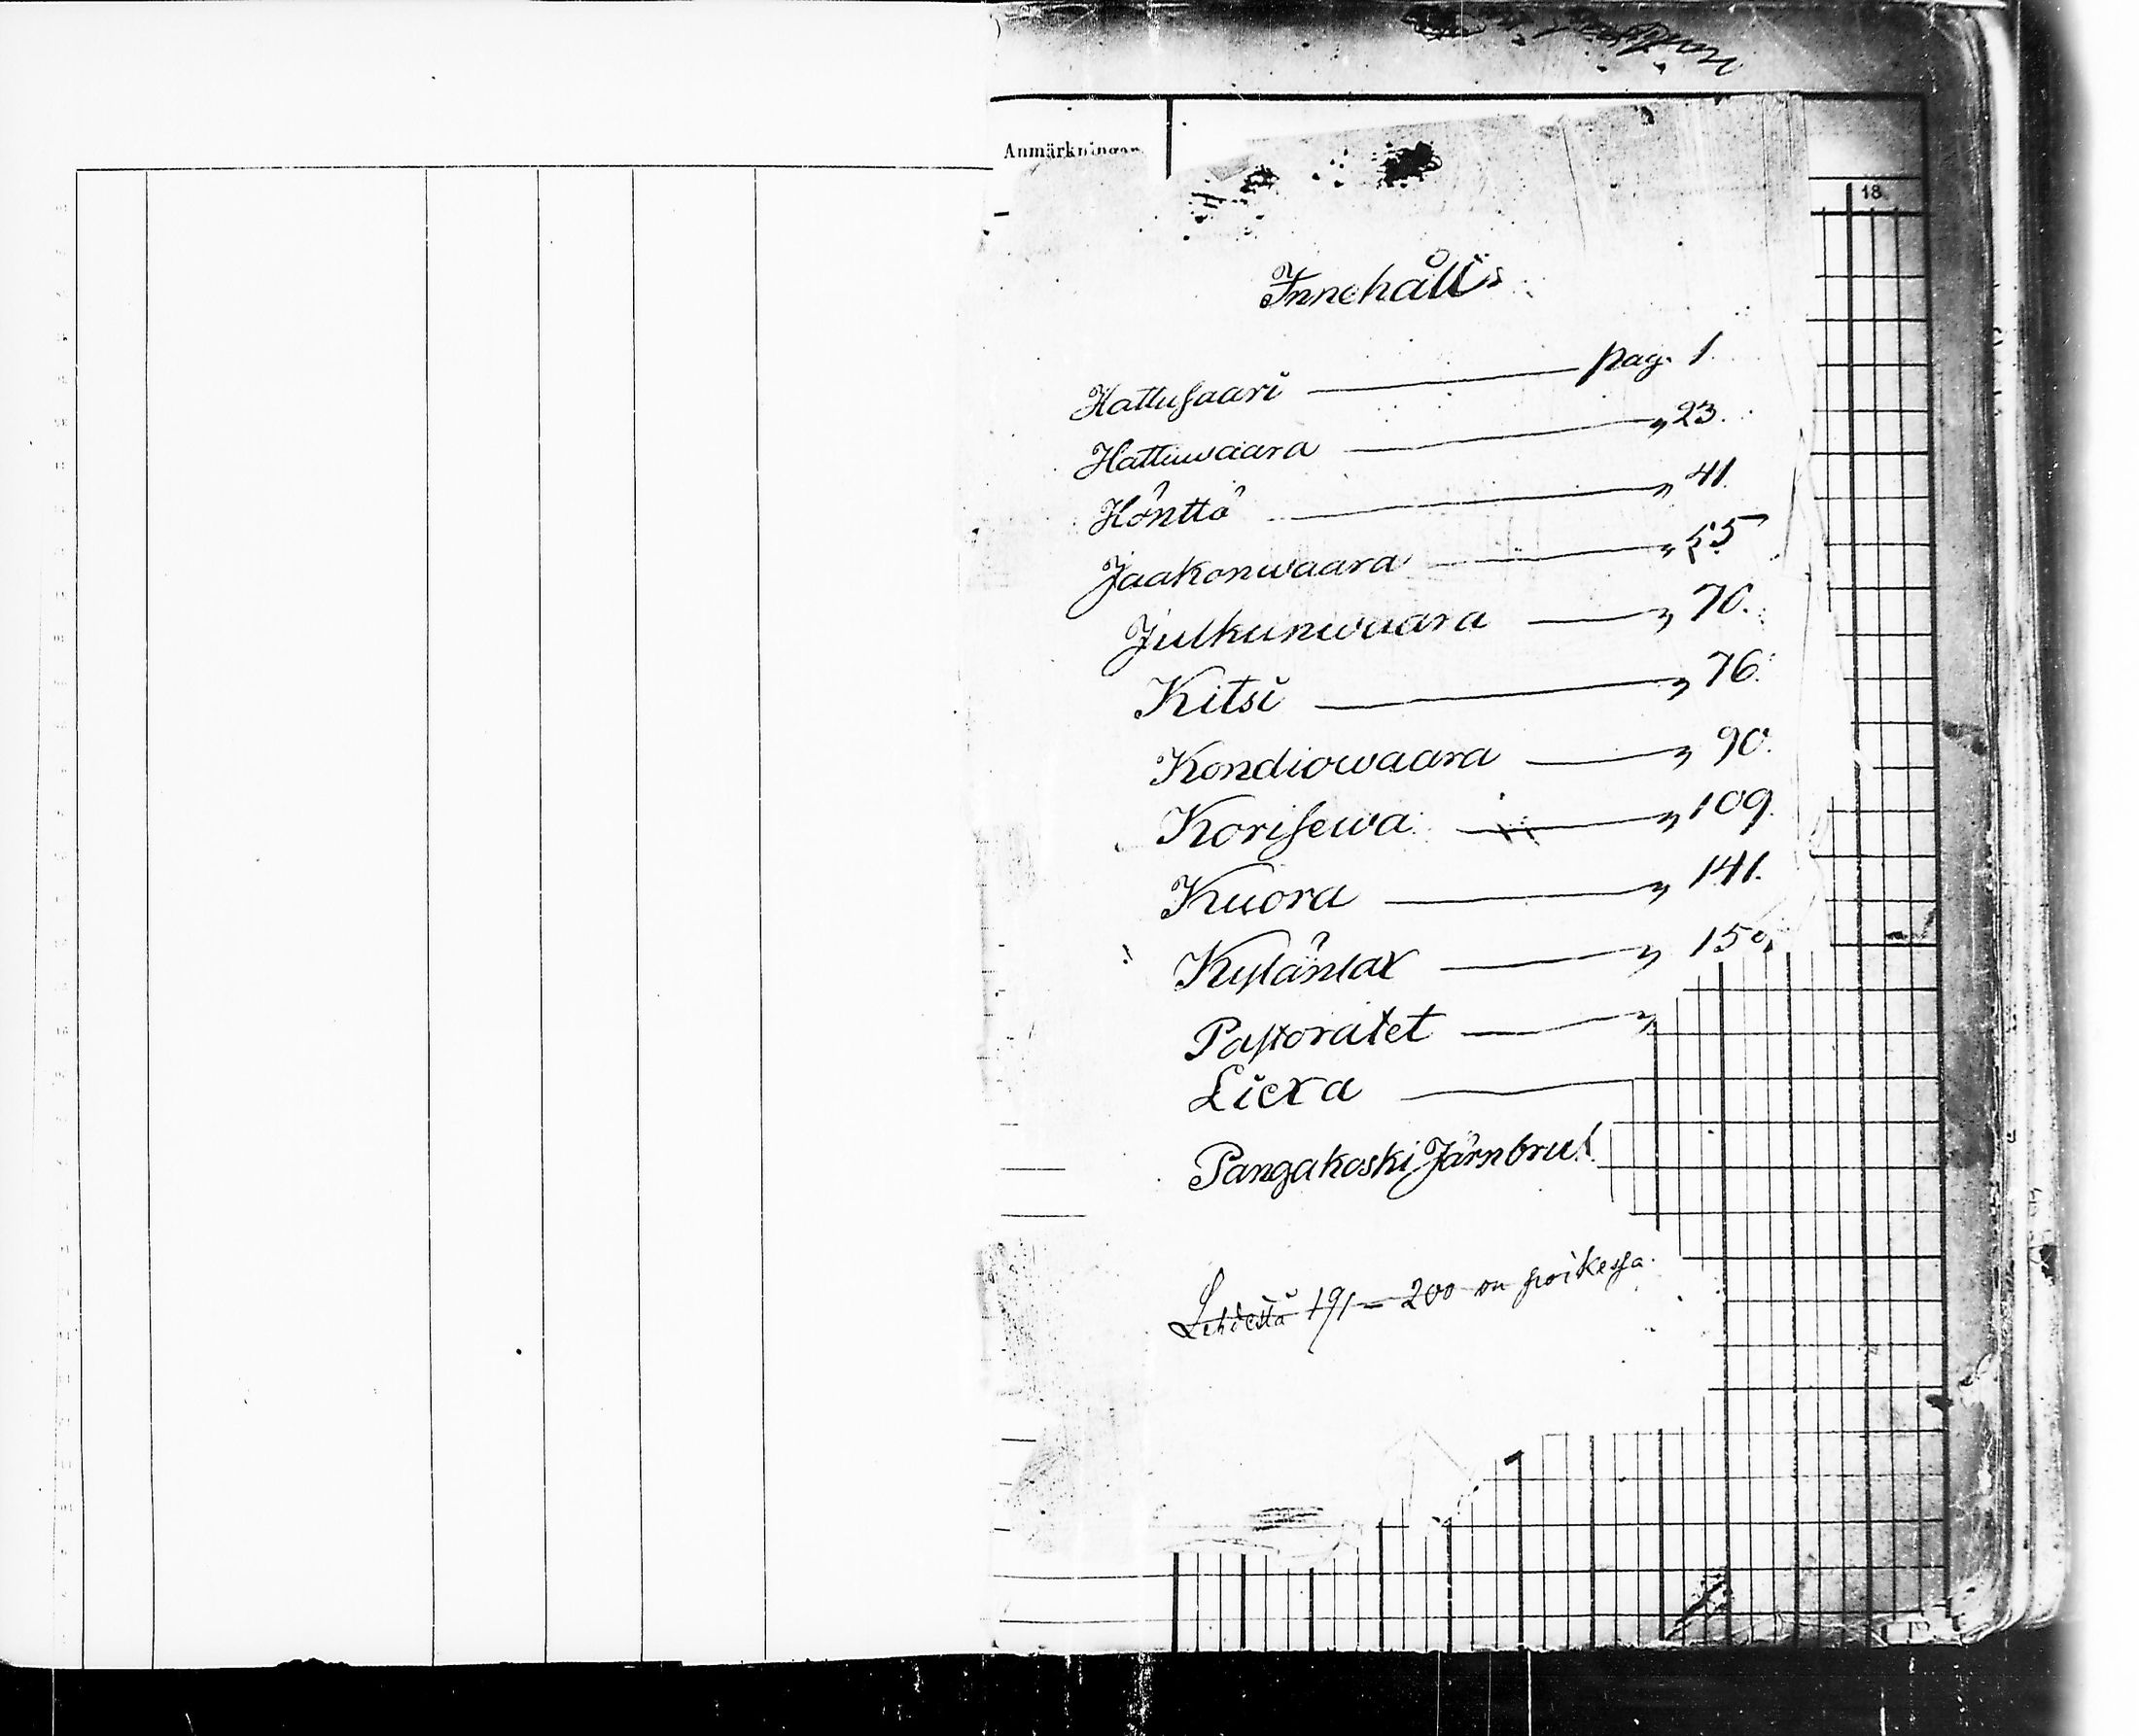 Anmärkningar
18
Innehålls
Hattusaari — pag. 1.
Hattuwaara — „ 23.
Hönttö — „ 41.
Jaakonwaara — „ 55
Julkunwaara — „ 70.
Kitsi — „ 76.
Kondiowaara — „ 90.
Korisewa — „ 109.
Kuora — „ 141.
Kylänlax — „ 150
Pastoratet — „
Liexa —
Pangakoski Järnbruk
Lehdestä 191 – 200 on poikessa.